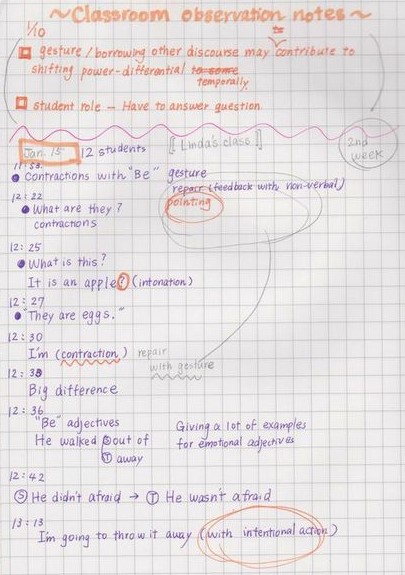 ~Classroom observation notes~
1/10
to
gesture/borrowing other discourse may contribute to
shifting power-differential to some
temporally.
student role - Have to answer question.
Jan. 15 12 students [[Linda's class]] 2nd week
11:53
Contractions with "Be" gesture
repair (feedback with non-verbal)
12:22 pointing
What are they?
contractions
12:25
What is this?
It is an apple? (intonation)
12:27
"They are eggs."
12:30
I'm (contraction) repair
with gesture
12:33
Big difference
12:36
"Be" adjectives Giving a lot of examples
He walked Ⓢ out of for emotional adjectives
Ⓣ away
12:42
Ⓢ He didn't afraid → Ⓣ He wasn't afraid
13:13
I'm going to throw it away (with intentional action)